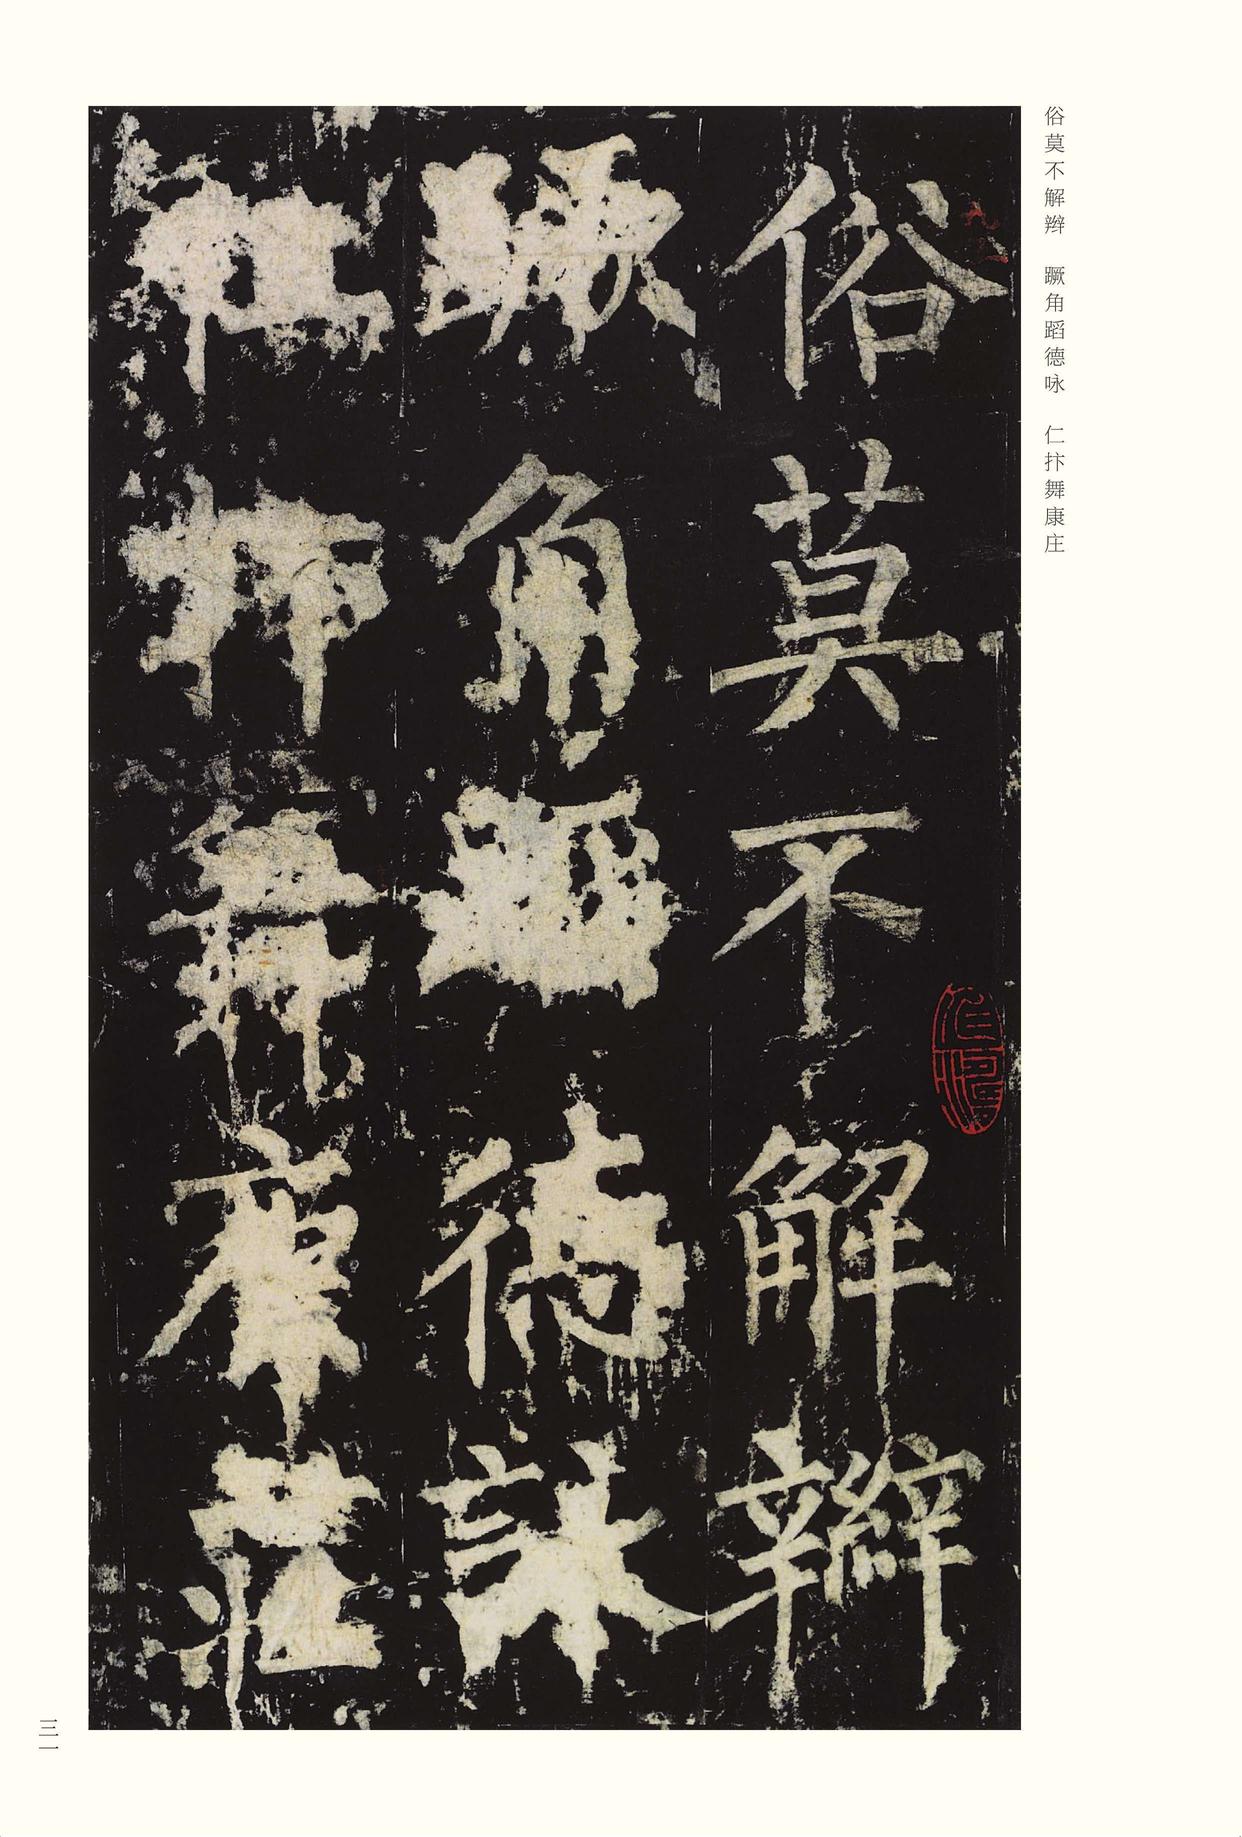 俗莫不解辫 蹶角蹈德咏 仁抃舞康庄
俗莫不解辮
蹶角蹈德詠
仁抃舞康莊
三一